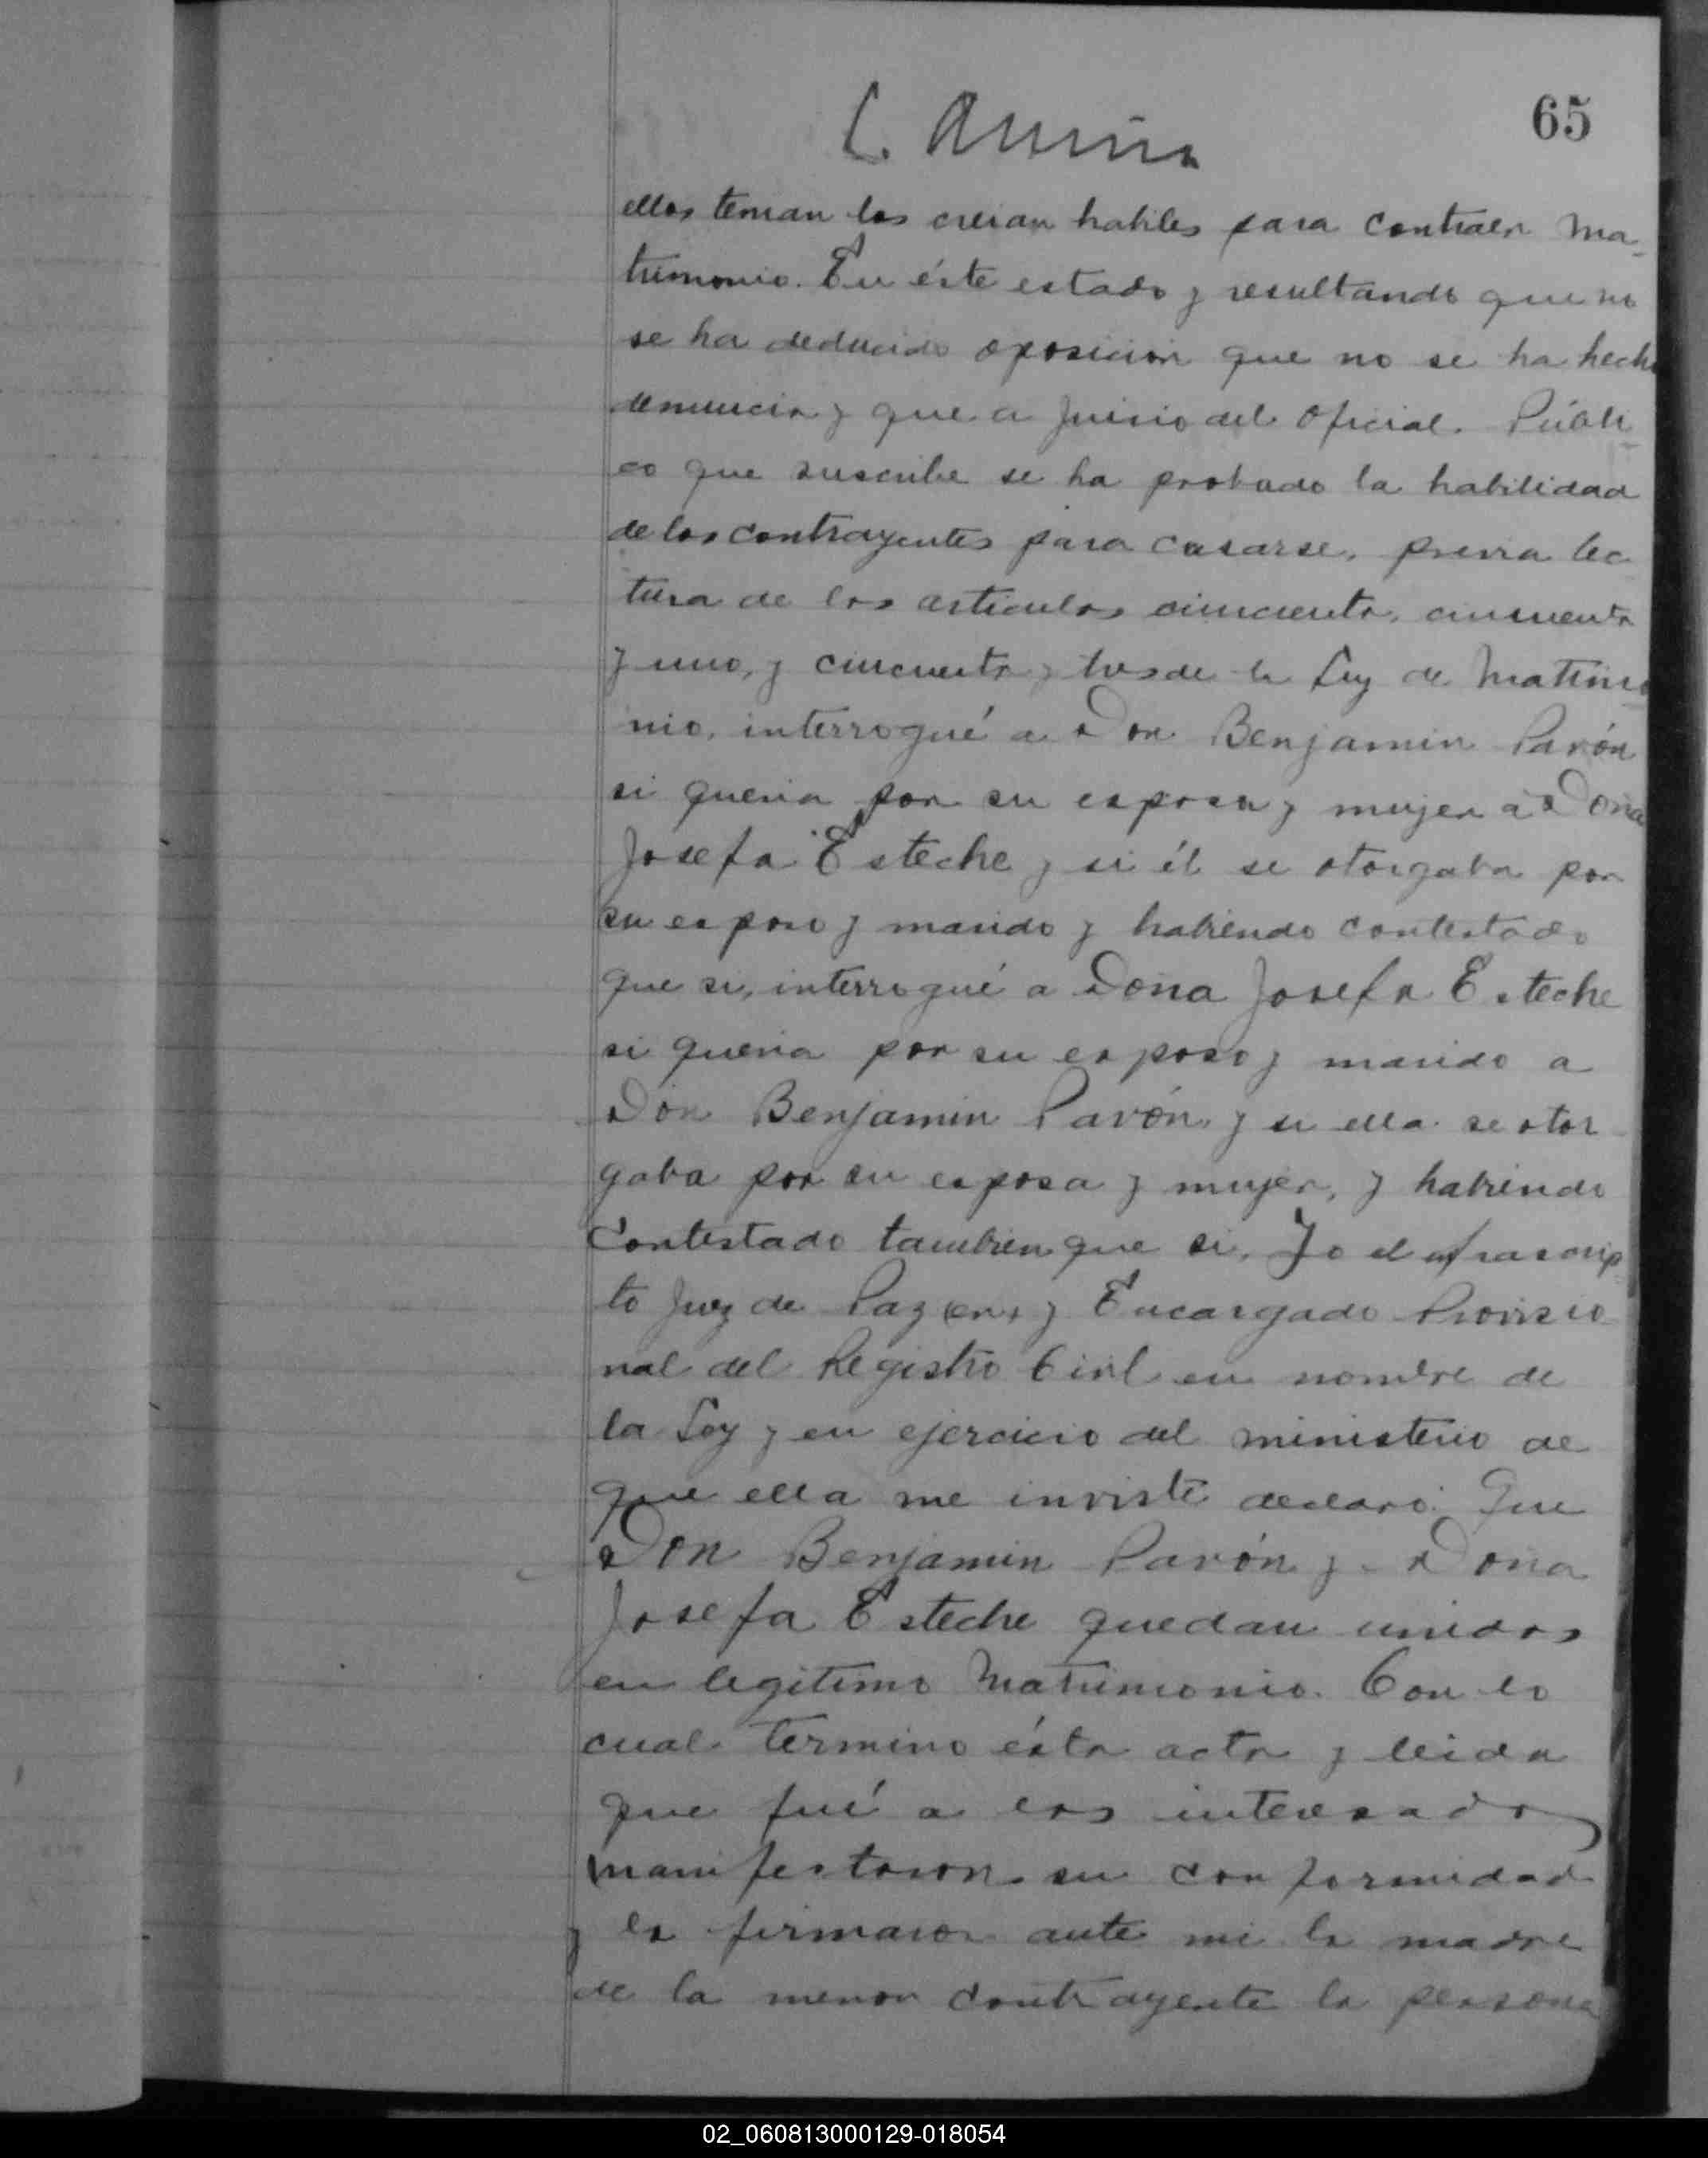 65
ellos tenian los creian habiles para contraer ma-
trimonio. En éste estado y resultando que no
se ha deducido oposicion que no se ha hecho
denuncia y que a juicio del oficial Públi-
co que suscribe se ha probado la habilidad
de los contrayentes para casarse, previa lec
tura de los articulos cincuenta, cincuenta
y uno, y cincuenta y tres de la Ley de Matrimo-
nio, interrogué a Don Benjamin Pavón
si queria por su esposa y mujer a Doña
Josefa Esteche y si él se otorgaba por
su esposo y marido y habiendo contestado
que si, interrogué a Doña Josefa Esteche
si queria por su esposo y marido a
Don Benjamin Pavón y si ella se otor
gaba por su esposa y mujer, y habiendo
contestado tambien que si, Yo el infrascrip-
to Juez de Paz y Encargado Provisio
nal del Registro Civil en nombre de
la Ley y en ejercicio del ministerio de
que ella me inviste declaró: Que
Don Benjamin Pavón y Doña
Josefa Esteche quedan unidos
en legitimo Matrimonio. Con lo
cual termino ésta acta y leida
que fué a los interesados
manifestaron su conformidad
y la firmaron ante mi la madre
de la menor contrayente la persona
02_060813000129-018054